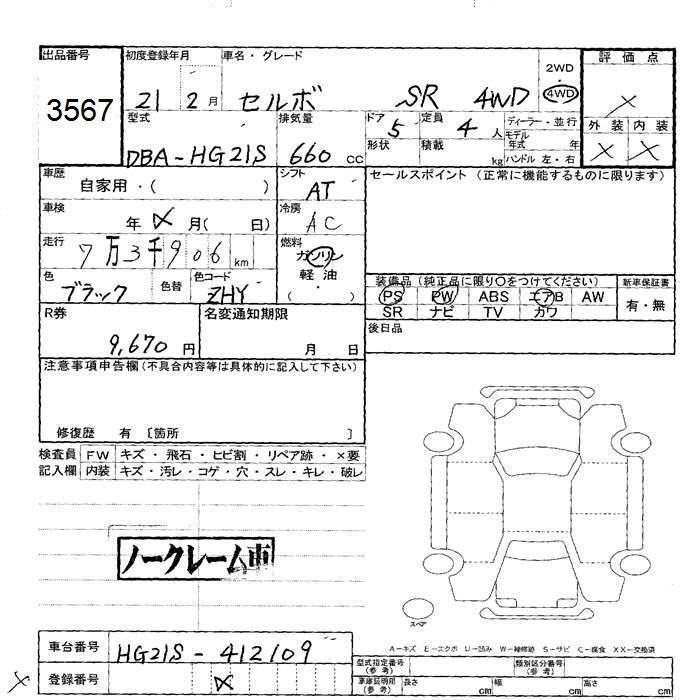 出品番号 3567
初度登録年月 21 2月
車名・グレード セルボ SR 4WD
2WD ・ 4WD
評価点 ×
外装 × 内装 ×
型式 DBA-HG21S
排気量 660 CC
ドア 5 形状
定員 4 人 積載 kg
ディーラー・並行
モデル年式 年
ハンドル 左・右
車歴 自家用・( )
シフト AT
セールスポイント (正常に機能するものに限ります)
車検 年 × 月( 日)
冷房 AC
走行 7万3千906 km
燃料 ガソリン
軽油
( ・ )
色 ブラック 色替 色コード ZHY
装備品 (純正品に限り〇をつけてください)
PS PW ABS エアB AW
SR ナビ TV カワ
新車保証書
有・無
R券 9,670 円
名変通知期限 月 日
後日品
注意事項申告欄 (不具合内容等は具体的に記入して下さい)
修復歴 有 〔箇所 〕
検査員記入欄
FW キズ・飛石・ヒビ割・リペア跡・×要
内装 キズ・汚レ・コゲ・穴・スレ・キレ・破レ
ノークレーム車
スペア
A-キズ E-エクボ U-凹み W-補修跡 S-サビ C-腐食 XX-交換済
車台番号 HG21S-412109
登録番号 ×
×
型式指定番号 (参考) 類別区分番号 (参考)
車庫証明用 (参考) 長さ cm 幅 cm 高さ cm